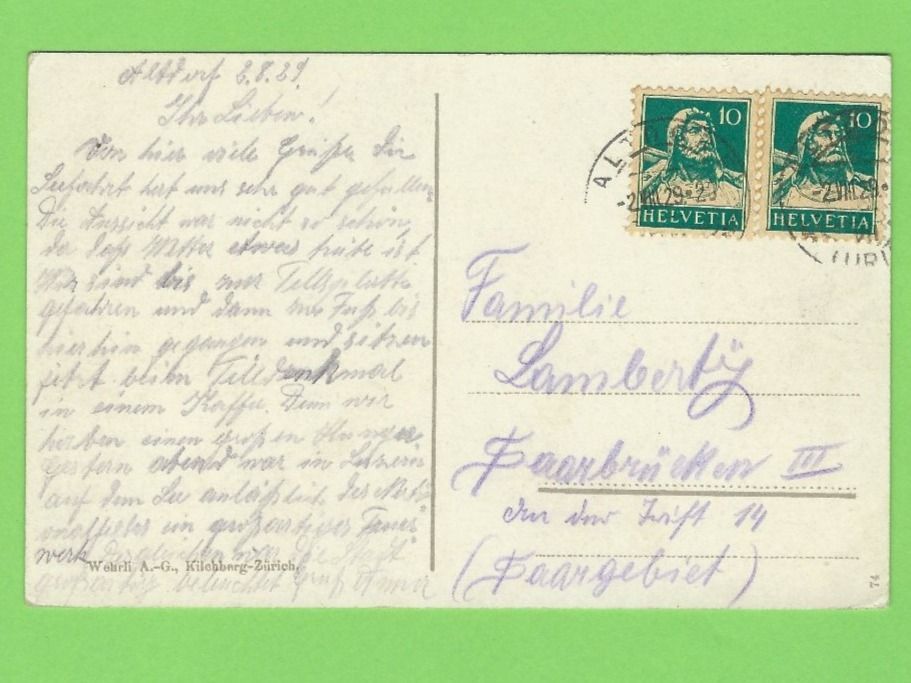 Altdorf 2.8.29
Ihr Lieben!
Von hier viele Grüße Die
Seefahrt hat uns sehr gut gefallen
Die Aussicht war nicht so schön,
da das Wetter etwas trübe ist
Wir sind bis zur Tellsplatte
gefahren und dann zu Fuß bis
hierhin gegangen und sitzen
jetzt beim Telldenkmal
in einem Kaffee. Denn wir
haben einen großen Hunger.
Gestern abend war in Luzern
auf dem See anläßlich des Nati-
onalfestes ein großartiges Feuer-
werk Desgleichen war die Stadt
großartig beleuchtet Gruß
Wehrli A.-G., Kilchberg-Zürich.
10
HELVETIA
10
HELVETIA
ALTD
-2.VIII.29-
(URI
Familie
Lamberty
Saarbrücken III
An der Trift 14
(Saargebiet)
74